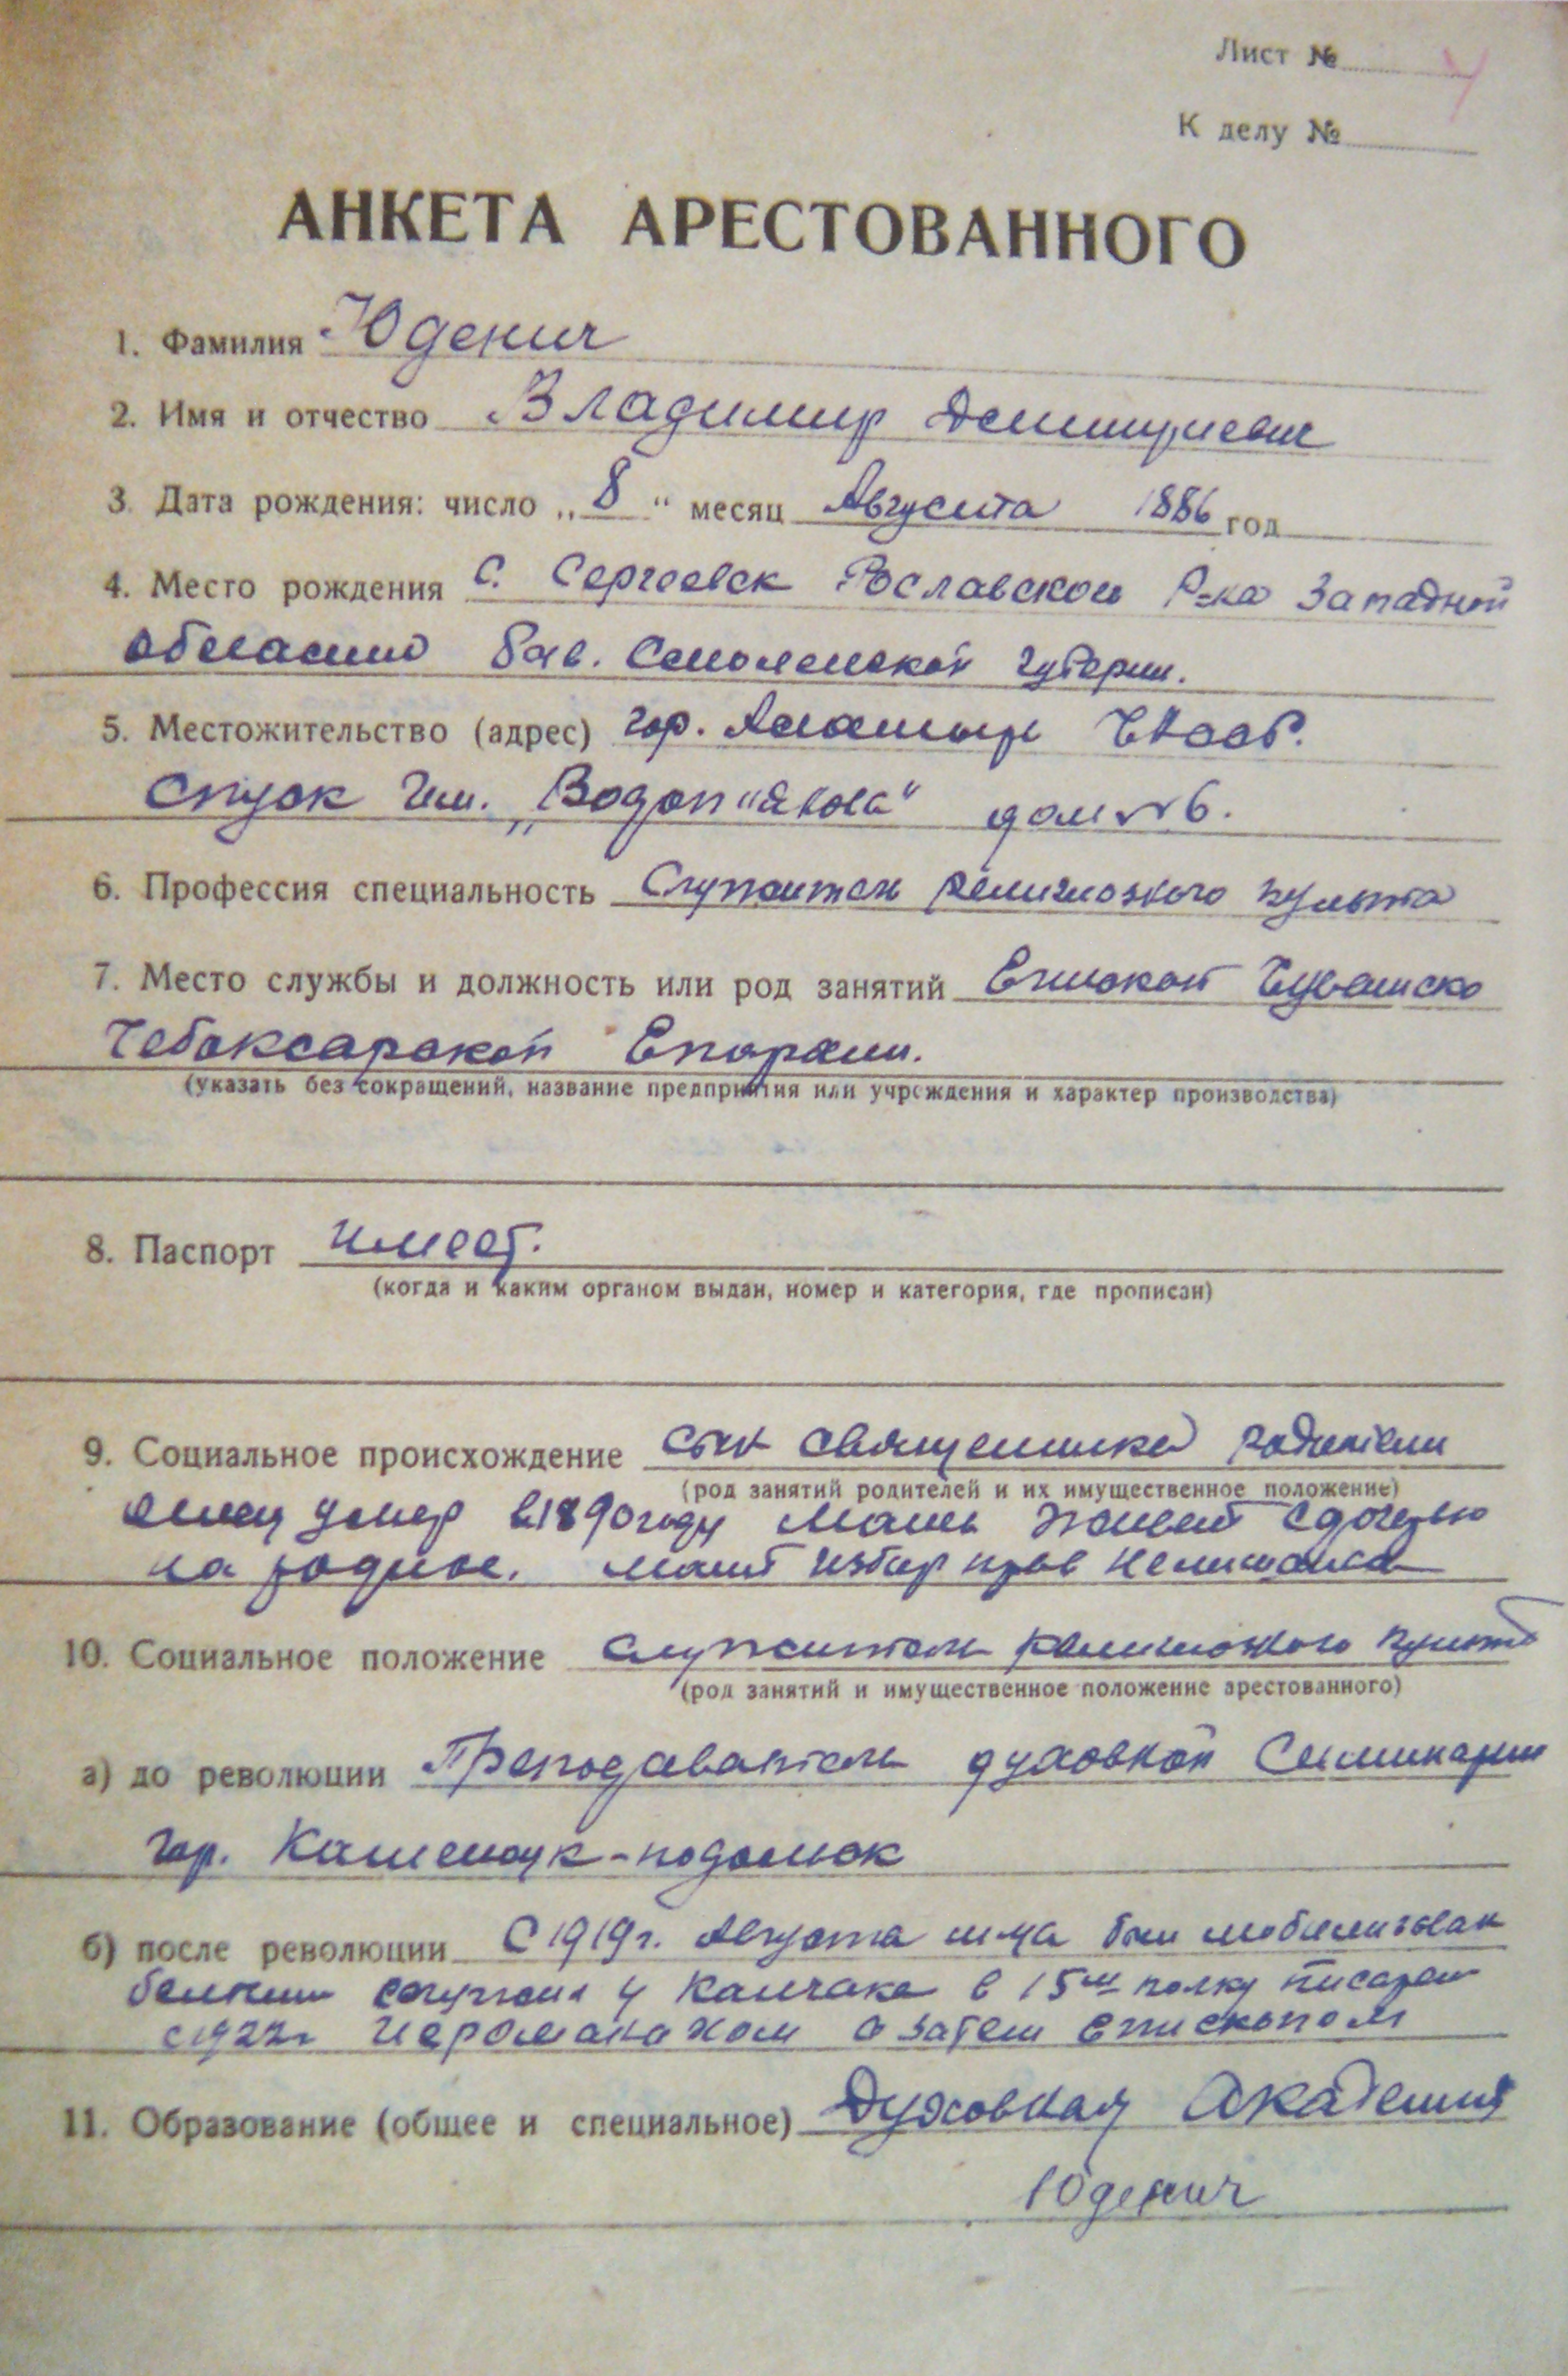 Лист № 4
К делу №
АНКЕТА АРЕСТОВАННОГО
1. Фамилия Юденич
2. Имя и отчество Владимир Дмитриевич
3. Дата рождения: число „8“ месяц Августа 1886 год
4. Место рождения С. Сергеевск Рославского Р-на Западной
области быв. Смоленской губерни.
5. Местожительство (адрес) гор. Алатырь ЧАССР.
Спуск Им. „Водоп"янова“ дом № 6.
6. Профессия специальность Служитель религиозного культа
7. Место службы и должность или род занятий Епископ Чувашско
Чебоксарской Епархии.
(указать без сокращений, название предприятия или учреждения и характер производства)
8. Паспорт имеет.
(когда и каким органом выдан, номер и категория, где прописан)
9. Социальное происхождение сын священника родители
(род занятий родителей и их имущественное положение)
отец умер в 1890 году Мать живет с дочерью
на родине. мать избир прав не лишалась
10. Социальное положение служитель религиозного культа
(род занятий и имущественное положение арестованного)
а) до революции Преподаватель духовной Семинарии
гор. Каменецк-подольск
б) после революции С 1919г. Августа м-ца был мобилизован
белыми служил у Колчака в 15м полку писарем
с 1922г Иеромонахом а затем епископом
11. Образование (общее и специальное) Духовная Академия
Юденич